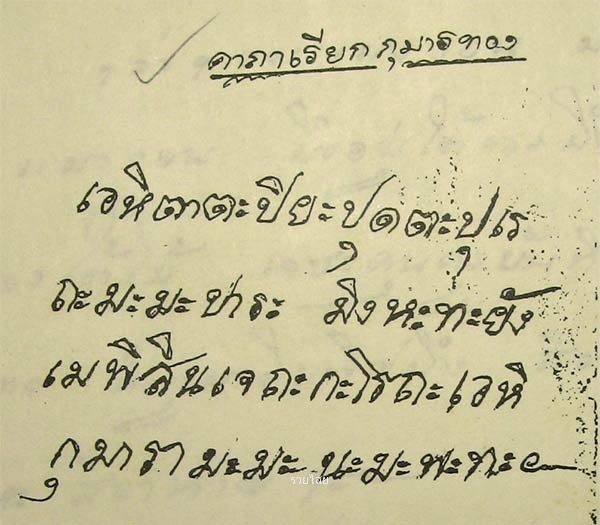 คาถาเรียกกุมารทอง
เอหิตาตะปิยะปุตตะปุเร
ถะมะมะปาระ มิงหะทะยัง
เมพิสินเจถะกะโรถะเอหิ
กุมารา มะมะ นะมะพะทะ
รวยโดย